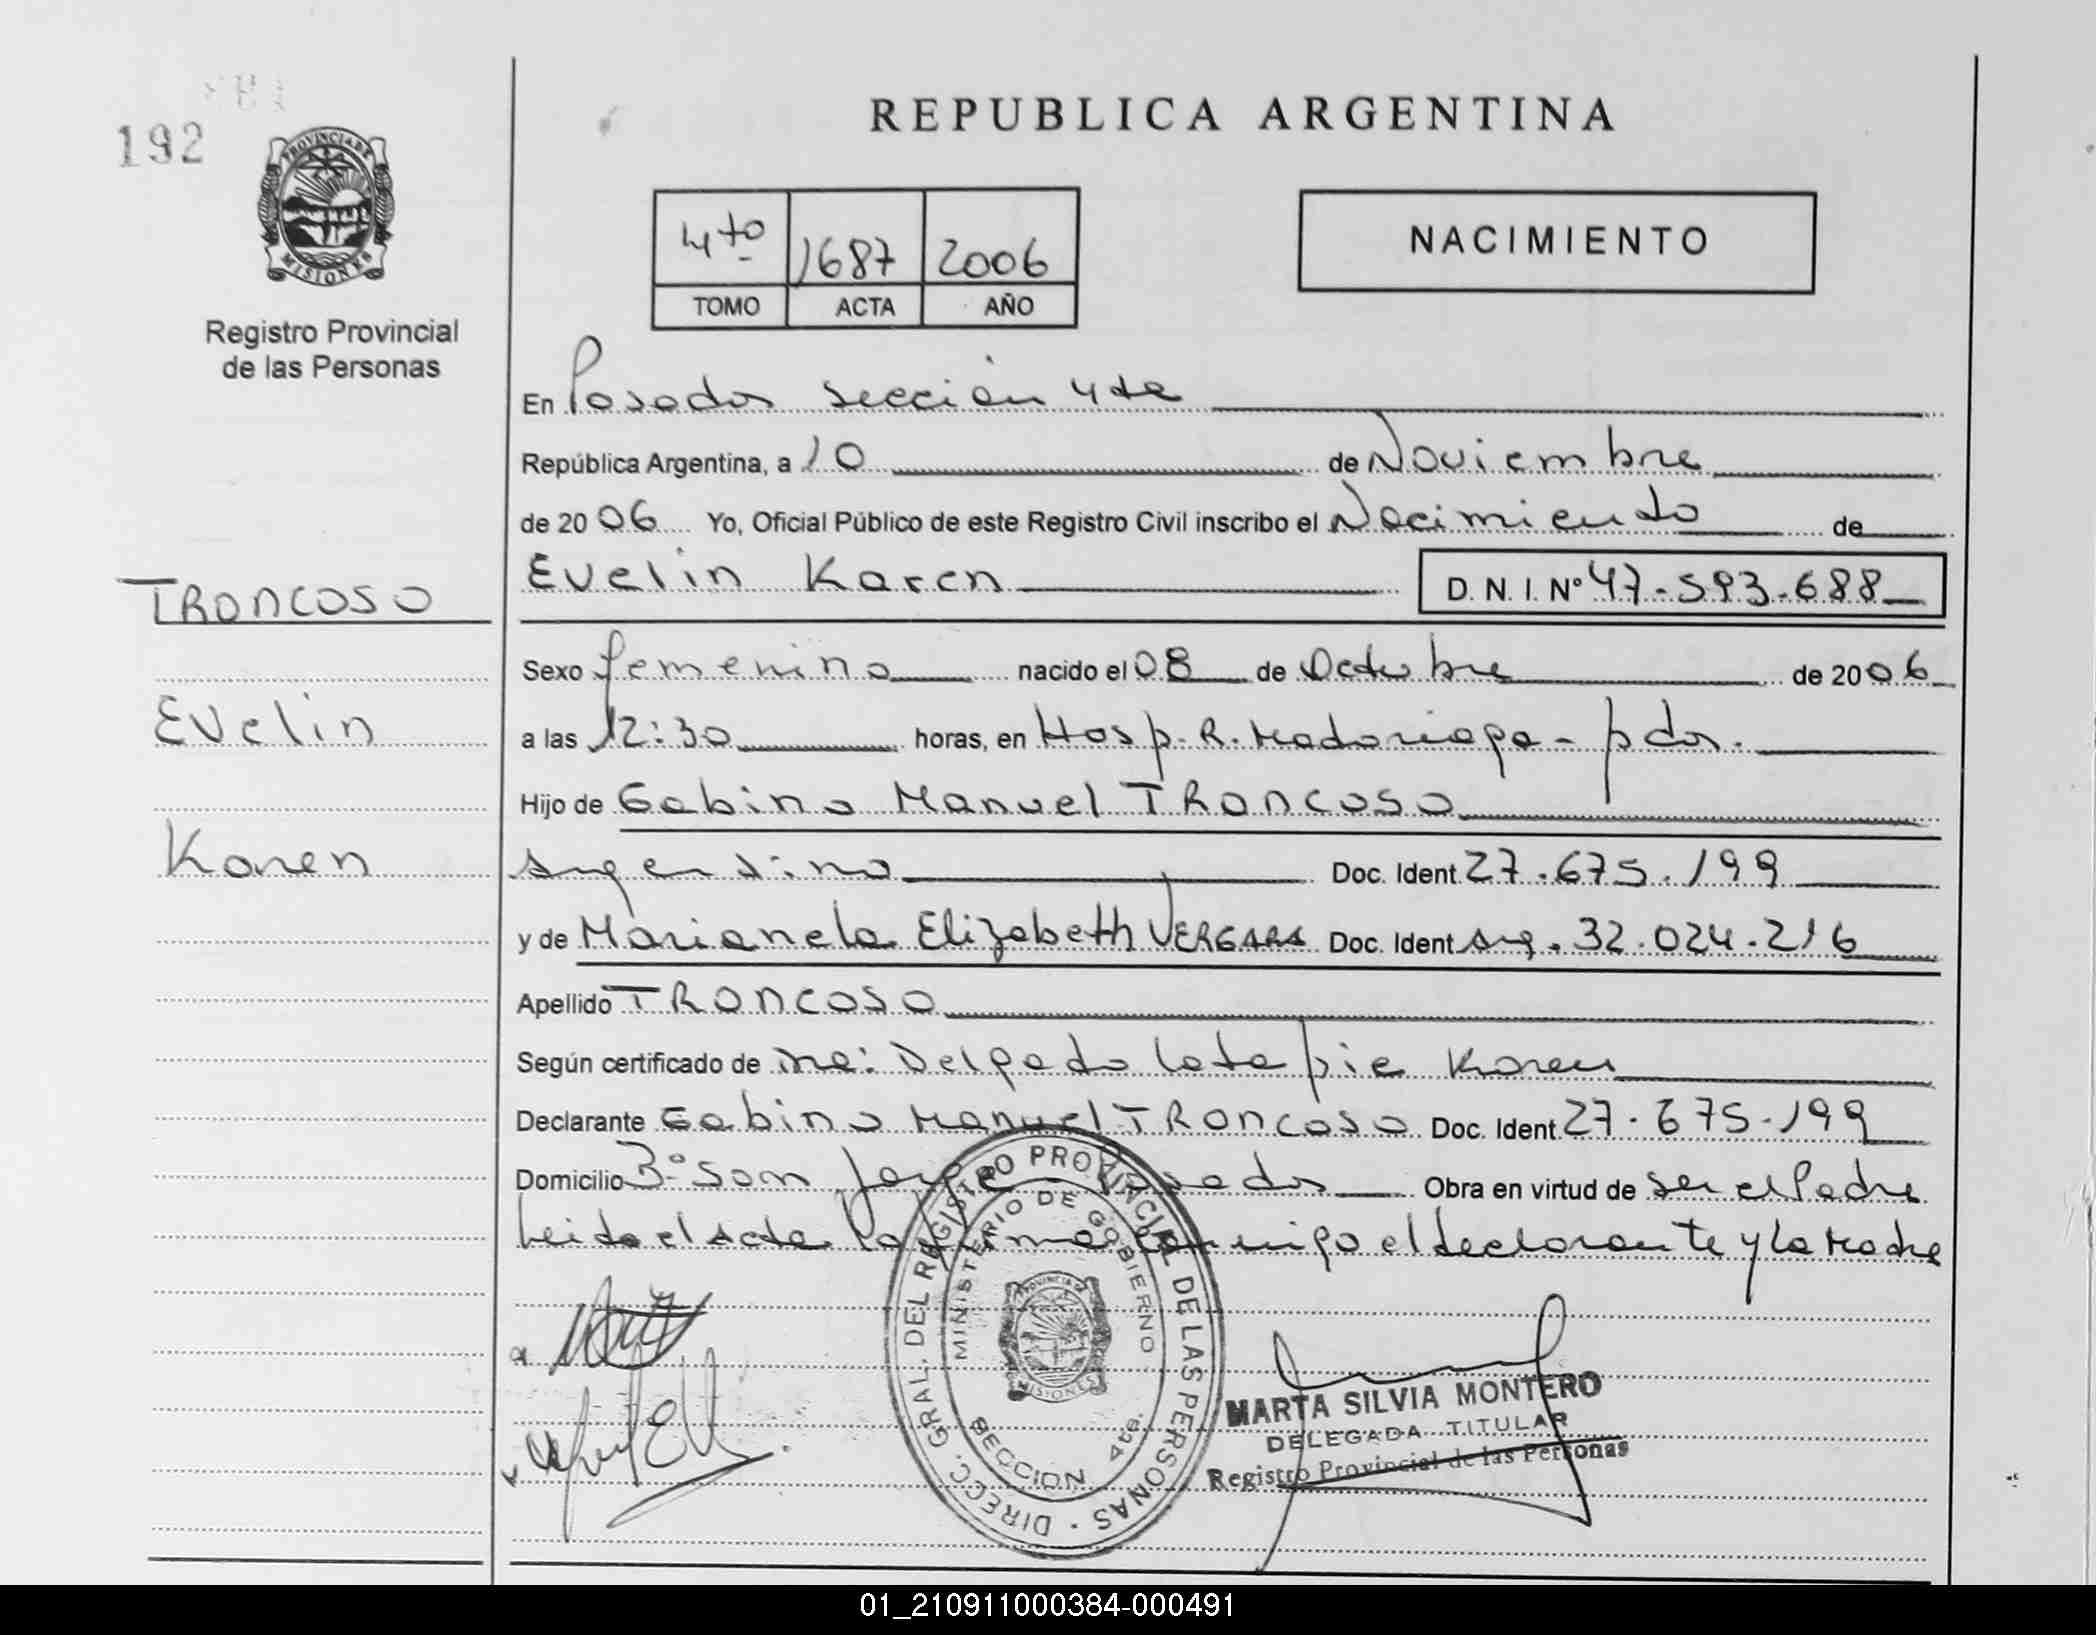 192
PROVINCIA DE
MISIONES
Registro Provincial
de las Personas
REPUBLICA ARGENTINA
4to 1687 2006
TOMO ACTA AÑO
NACIMIENTO
En Posadas sección 4ta
República Argentina, a 10 de Noviembre
de 2006 Yo, Oficial Público de este Registro Civil inscribo el Nacimiento de
Evelin Karen D. N. I. Nº 47-593-688
TRONCOSO
Evelin
Karen
Sexo femenino nacido el 08 de Octubre de 2006
a las 12:30 horas, en Hosp. R. Madariaga - pdas.
Hijo de Gabino Manuel TRONCOSO
Argentino Doc. Ident 27.675.199
y de Marianela Elizabeth VERGARA Doc. Ident Arg. 32.024.216
Apellido TRONCOSO
Según certificado de Delgado Karen
Declarante Gabino Manuel TRONCOSO Doc. Ident. 27.675.199
Domicilio San Jorge Posadas Obra en virtud de ser el Padre
Leida el Acta la firma conmigo el declarante y la Madre
DIRECC. GRAL. DEL REGISTRO PROVINCIAL DE LAS PERSONAS
MINISTERIO DE GOBIERNO
PROVINCIA DE
MISIONES
SECCION 4ta.
MARTA SILVIA MONTERO
DELEGADA TITULAR
Registro Provincial de las Personas
01_210911000384-000491